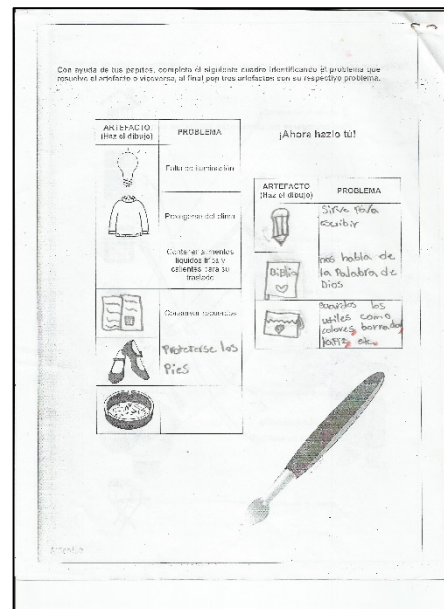 Con ayuda de tus papitos, completa el siguiente cuadro identificando el problema que
resuelve el artefacto o viceversa, al final pon tres artefactos con su respectivo problema.
ARTEFACTO
(Haz el dibujo)
PROBLEMA
Falta de iluminación
Protegerse del clima
Contener alimentos
líquidos fríos y
calientes para su
traslado
Conservar recuerdos
Proteterse los
Pies
¡Ahora hazlo tú!
ARTEFACTO
(Haz el dibujo)
PROBLEMA
Sirve Para
escribir
Biblia
nos habla de
la Palabra de
Dios
los
utiles como
colores, borrador,
etc.